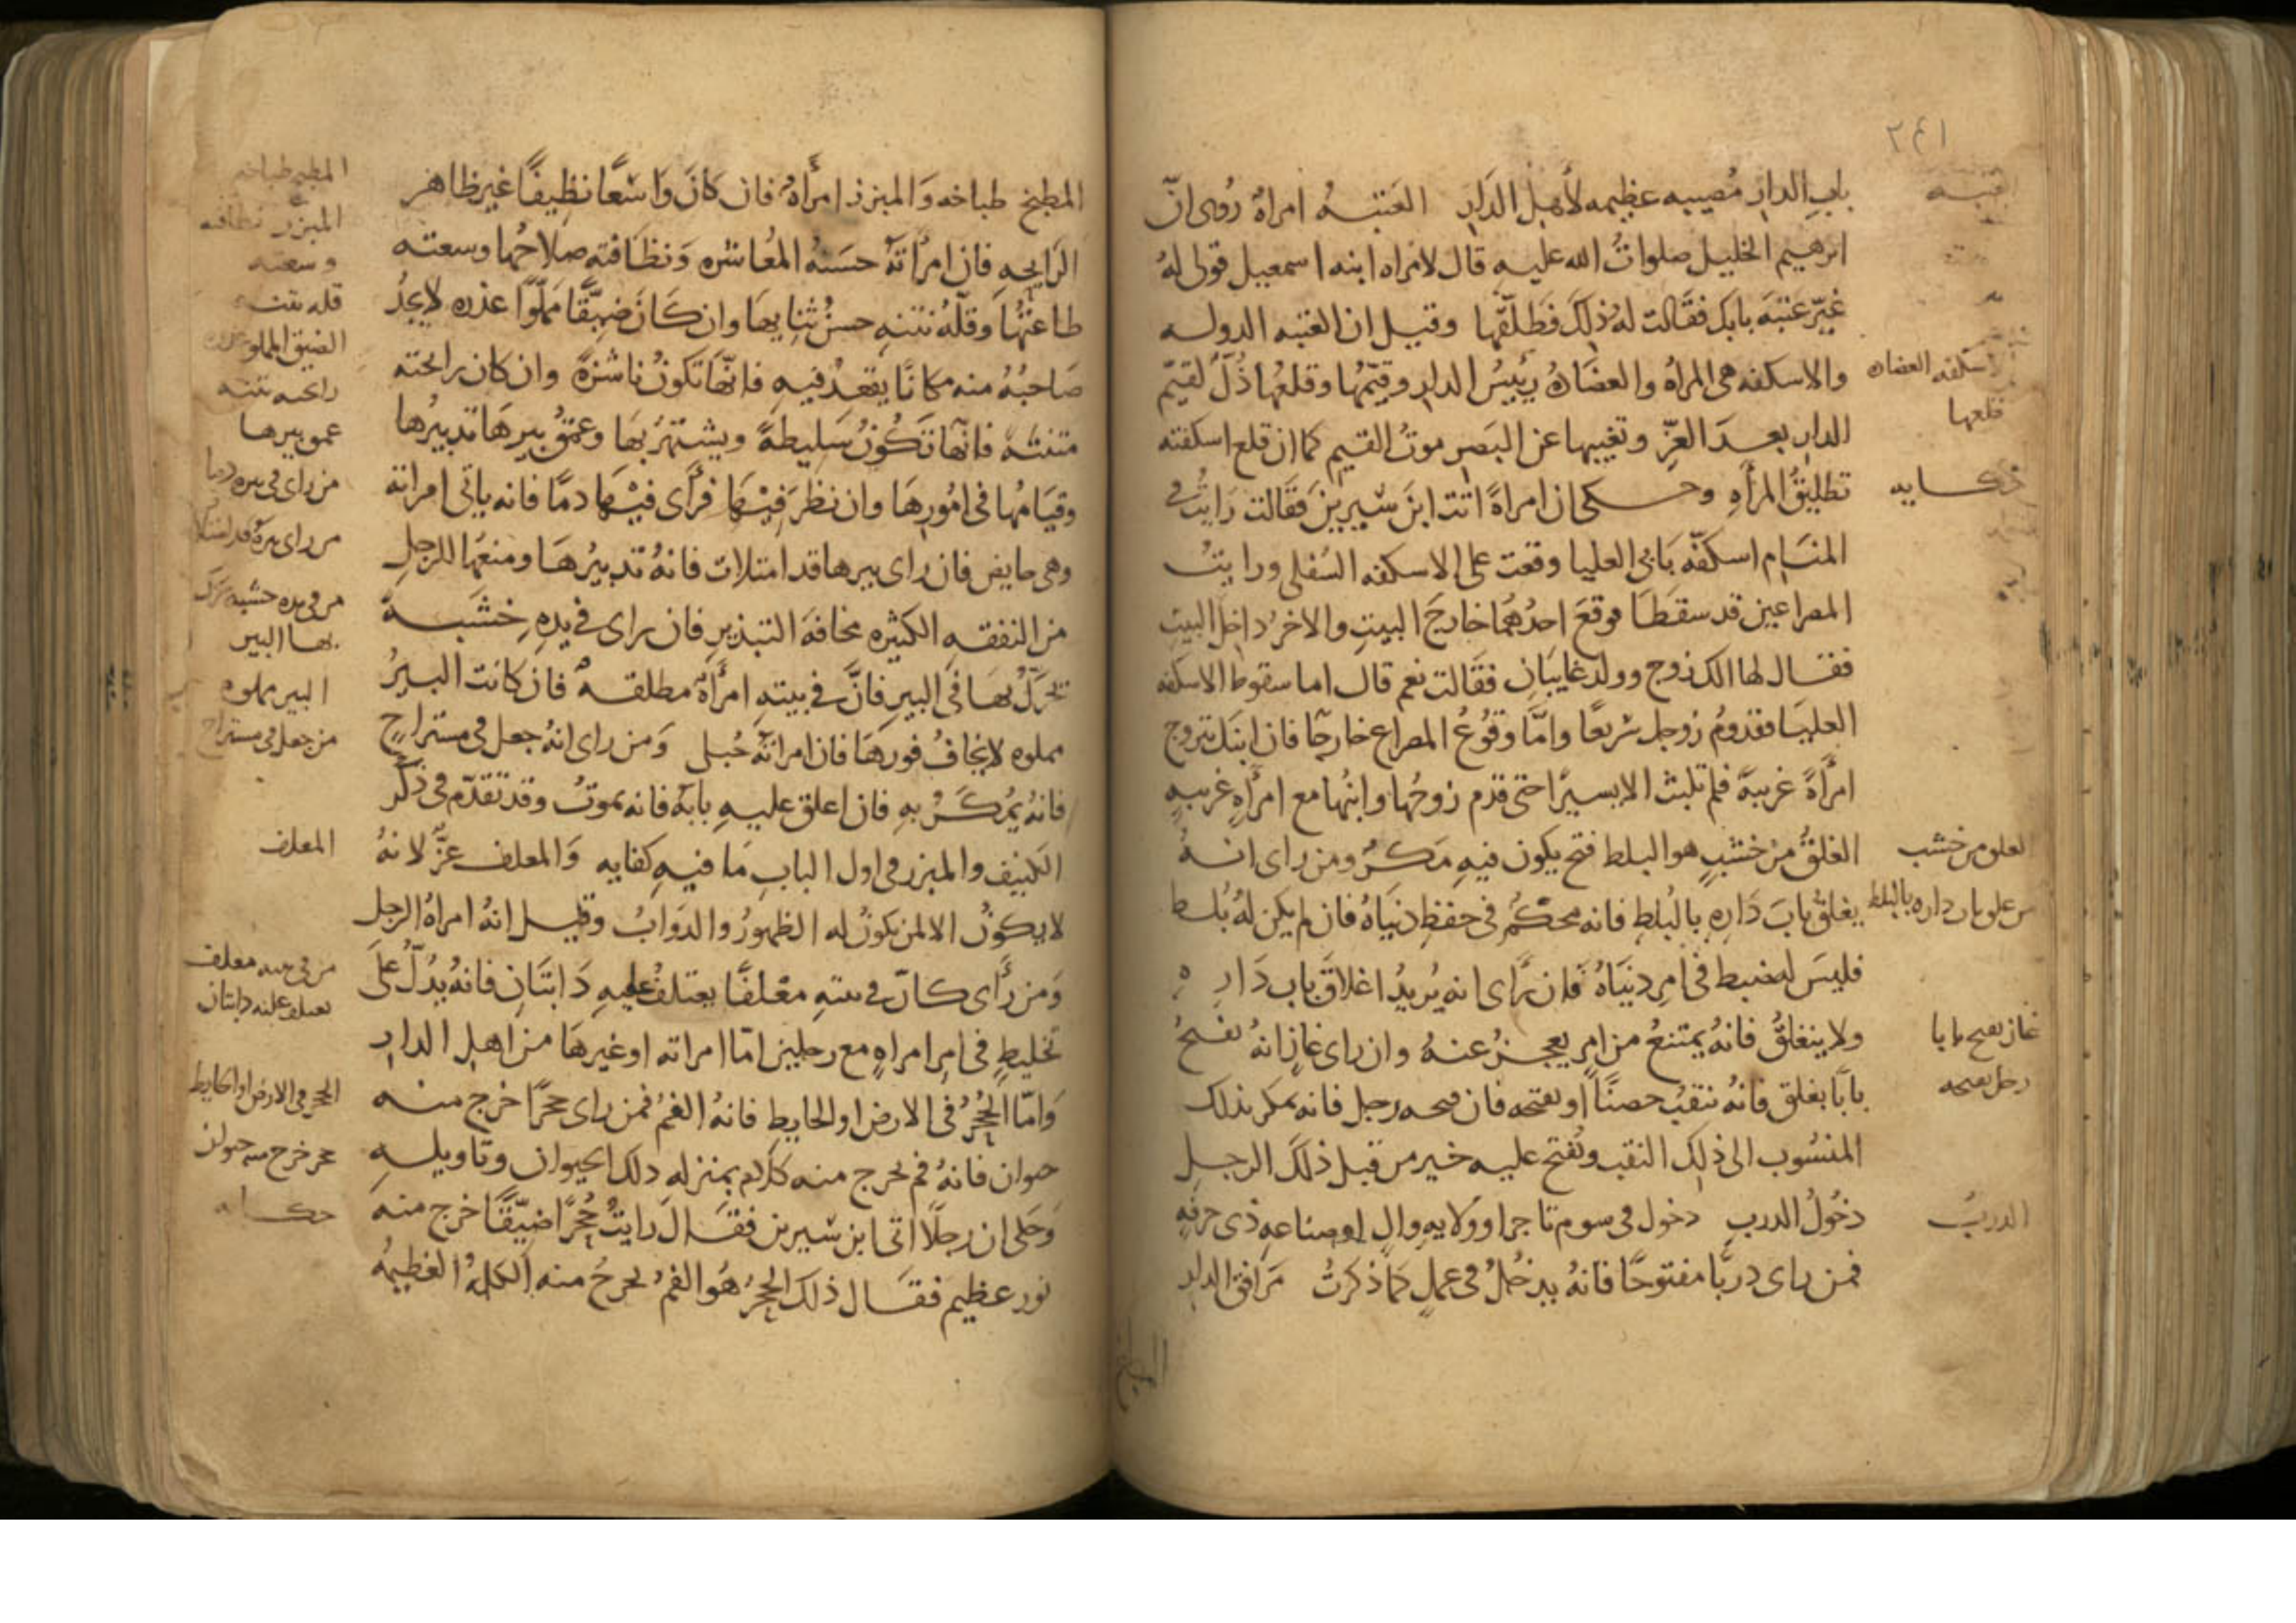 ٢٤١
باب الدار مُصيبه عظيمه لأهل الدار العَتبهُ امراهٌ رُوى انّ
ابرهيم الخليل صلواتُ الله عليه قال لامراه ابنه اسمعيل قولى لهُ
غيّر عَتبَةَ بابك فقالت لهُ ذلك فَطلّقها وقيل ان العتبه الدوله
والاسكفه هى المراهُ والعضَادهُ رئيسُ الدار وقيّمُها وقلعُها ذُلّ لقيّم
الدار بعدَ العِزّ وتغيبها عن البَصر موتُ القيم كما ان قلع اسكفته
تطليقُ المرأهِ وحكى ان امراةً اتت ابنَ سيرين فقالت رَايتُ فى
المنَام اسكفّه بَابى العليا وقعت على الاسكفه السُفلى ورايتُ
المصراعين قد سقطَا فوقعَ احدُهُما خارجَ البيتِ والاخرُ داخل البيتِ
فقال لها الك زوج وولد غايبَان فقالت نعم قال اما سقوط الاسكفه
العليَا فقدومُ زوجك سريعًا وامَّا وقُوعُ المصراع خارجًا فان ابنك تزوج
امرأةً غريبةً فلم تلبث الا يسيرًا حتى قدم زوجُها وابنُها مع امرأهٍ غريبهٍ
الغلقُ من خشبٍ هو البلط فتح يكون فيهِ مَكرٌ ومن راى انهُ
يغلقُ بابَ دَارهِ بالبُلطِ فانه محكمٌ فى حفظِ دنيَاهُ فان لم يكن لهُ بُلط
فليسَ له ضبط فى امرِ دنيَاهُ فان رَأى انه يُريدُ اغلاقَ باب دَارِه
ولا ينغلقُ فانهُ يمتنعُ من امرٍ يعجزُ عنهُ وان راى غازٍ انهُ يفتحُ
بابًا بغلقٍ فانهُ ينقبُ حصنًا او يفتحه فان فتحه رجل فانه يمكر بذلك
المنسُوب الى ذلك النقب ويُفتح عليه خير من قبل ذلكَ الرجلِ
دخُولُ الدربِ دخول فى سوم تاجر او ولايهِ والٍ او صناعهِ ذى حرفهٍ
فمن راى دربًا مفتوحًا فانهُ يدخُلُ فى عملٍ كمَا ذكرتُ مَرافق الدار
اسكفه العضاده
قلعها
الغلق من خشب
من غلق باب داره بالبلط
غاز يفتح بابا
رجل يفتحه
الدربُ
المطبخ طباخه وَالمبرز امرأهٌ فان كانَ وَاسعًا نظيفًا غير ظاهر
الرَايحهِ فان امرأتهُ حسَنهُ المُعاشره وَنظَافته صلاحُها وسعته
طاعتُها وقلّهُ نتنه حسنُ ثنايها وان كَانَ ضيّقًا مملوًا عذره لا يجدُ
صَاحبُهُ منه مكانًا يقعدُ فيهِ فانهَا تكونُ ناشزةً وان كان رايحته
منتنه فانّها تكُونُ سَليطهً ويشتهرُ بهَا وعمقُ بيرهَا تدبيرُها
وقيَامُها فى امُورهَا وان نظرَ فيهَا فرأَى فيهَا دمًا فانه ياتى امراته
وهى حايض فان راى بيرها قد امتلات فانهُ تدبيرُهَا ومنعُها للرجلِ
من النفقه الكثيره مخافةَ التبذير فان راى فى يدِهِ خشَبه
تحركُ بهَا فى البيرِ فانَّ فى بيتهِ امرأةً مطلقه فان كانت البيرُ
مملوه لا يخافُ فورهَا فان امراتهُ حُبلى وَمن راى انهُ جعل فى مستراحٍ
فانهُ يُمكَرُ بهِ فان اغلق عليهِ بابهُ فانه يموتُ وقد تقدّم فى ذكر
الكنيف والمبرز فى اول البابِ مَا فيهِ كفايه وَالمعلف عزٌّ لانهُ
لا يكونُ الا لمن يكونُ له الظهورُ والدوَابُ وقيل انهُ امراهُ الرجل
وَمن رَأى كانّ فى بيتهِ معْلفًا يعتلفُ عليهِ دَابتَانِ فانهُ يدُلّ علَى
تخليطٍ فى امر امراهٍ مع رجلين امّا امراته او غيرهَا من اهل الدار
وَامّا الجُحْرُ فى الارض او الحايط فانهُ الفمُ فمن راى جحرًا خرج منه
حيوان فانهُ فم يخرج منه كلام بمنزله ذلك الحيوان وتاويله
وَحكى ان رجلًا اتى ابن سيرين فقَال رايتُ جُحرًا ضيّقًا خرج منهَ
ثور عظيم فقَال ذلك الجُحرُ هُوَ الفمُ يخرجُ منه الكلمهُ العظيمهُ
المبرز نظافته
وسعته
قله نتنه
الضيق المملو عذره
رايحته نتنه
عمق بيرها
من راى فى بيره دما
من فى يده خشبه يحرك
بها البير
البير مملوه
من جعل فى مستراح
المعلف
من فى بيته معلف
يعتلف عليه دابتان
الجحر فى الارض او الحايط
جحر خرج منه حيوان
حكايه